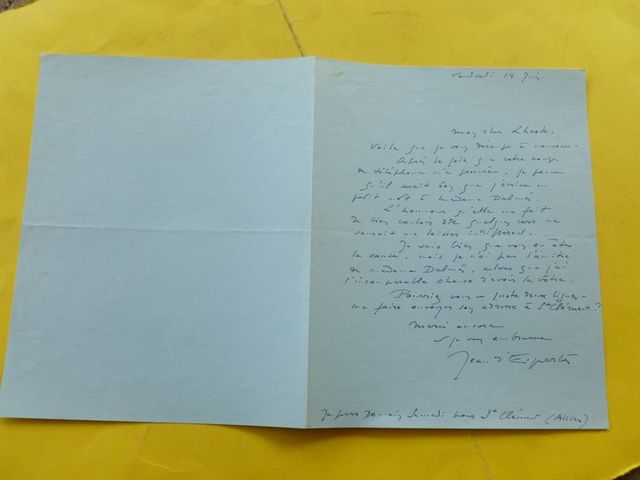 Vendredi 14 Juin
Mon cher Lhoste.
Voilà que je vous dérange à nouveau.
Après la joie que votre coup
de téléphone m'a procurée, je pense
qu'il serait bon que j'écrive un
petit mot à madame Dalmès.
L'honneur qu'elle me fait
de bien vouloir dire quelques vers ne
saurait me laisser indifférent.
Je sais bien que vous en êtes
la cause, mais je n'ai pas l'amitié
de madame Dalmès, alors que j'ai
l'incomparable chance d'avoir la vôtre.
Pourriez vous - juste deux lignes -
me faire envoyer son adresse à St Clément ?
Merci encore
et je vous embrasse
Jean d'Esparbès
Je pars Demain Samedi pour St Clément (Allier)